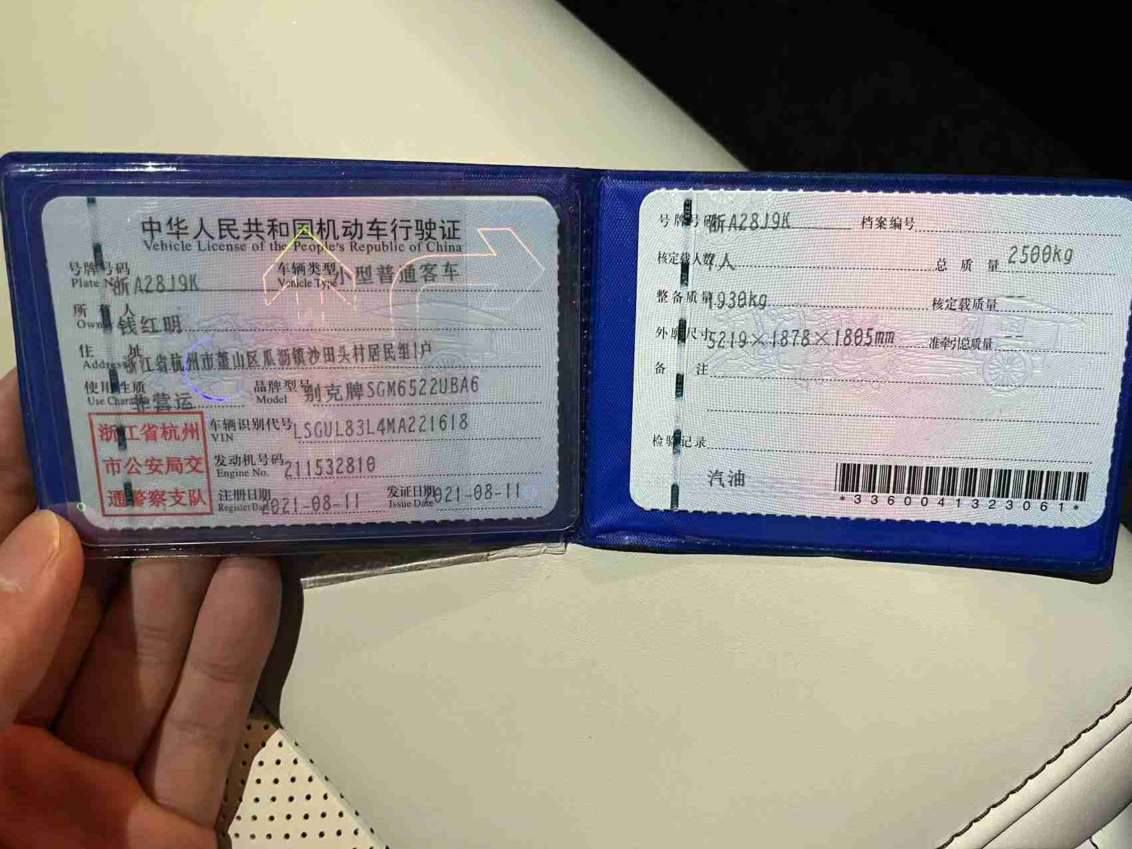 中华人民共和国机动车行驶证
Vehicle License of the People's Republic of China
号牌号码 浙A28J9K 车辆类型 小型普通客车
Plate No. Vehicle Type
所有人 钱红明
Owner
住址 浙江省杭州市萧山区瓜沥镇沙田头村居民组1户
Address
使用性质 非营运 品牌型号 别克牌SGM6522UBA6
Use Character Model
浙江省杭州
市公安局交
通警察支队
车辆识别代号 LSGUL83L4MA221618
VIN
发动机号码 211532810
Engine No.
注册日期 2021-08-11 发证日期 2021-08-11
Register Date Issue Date
号牌号码 浙A28J9K 档案编号
核定载人数 7人 总质量 2500kg
整备质量 1930kg 核定载质量 --
外廓尺寸 5219×1878×1805mm 准牵引总质量 --
备注
检验记录
汽油
*3360041323061*